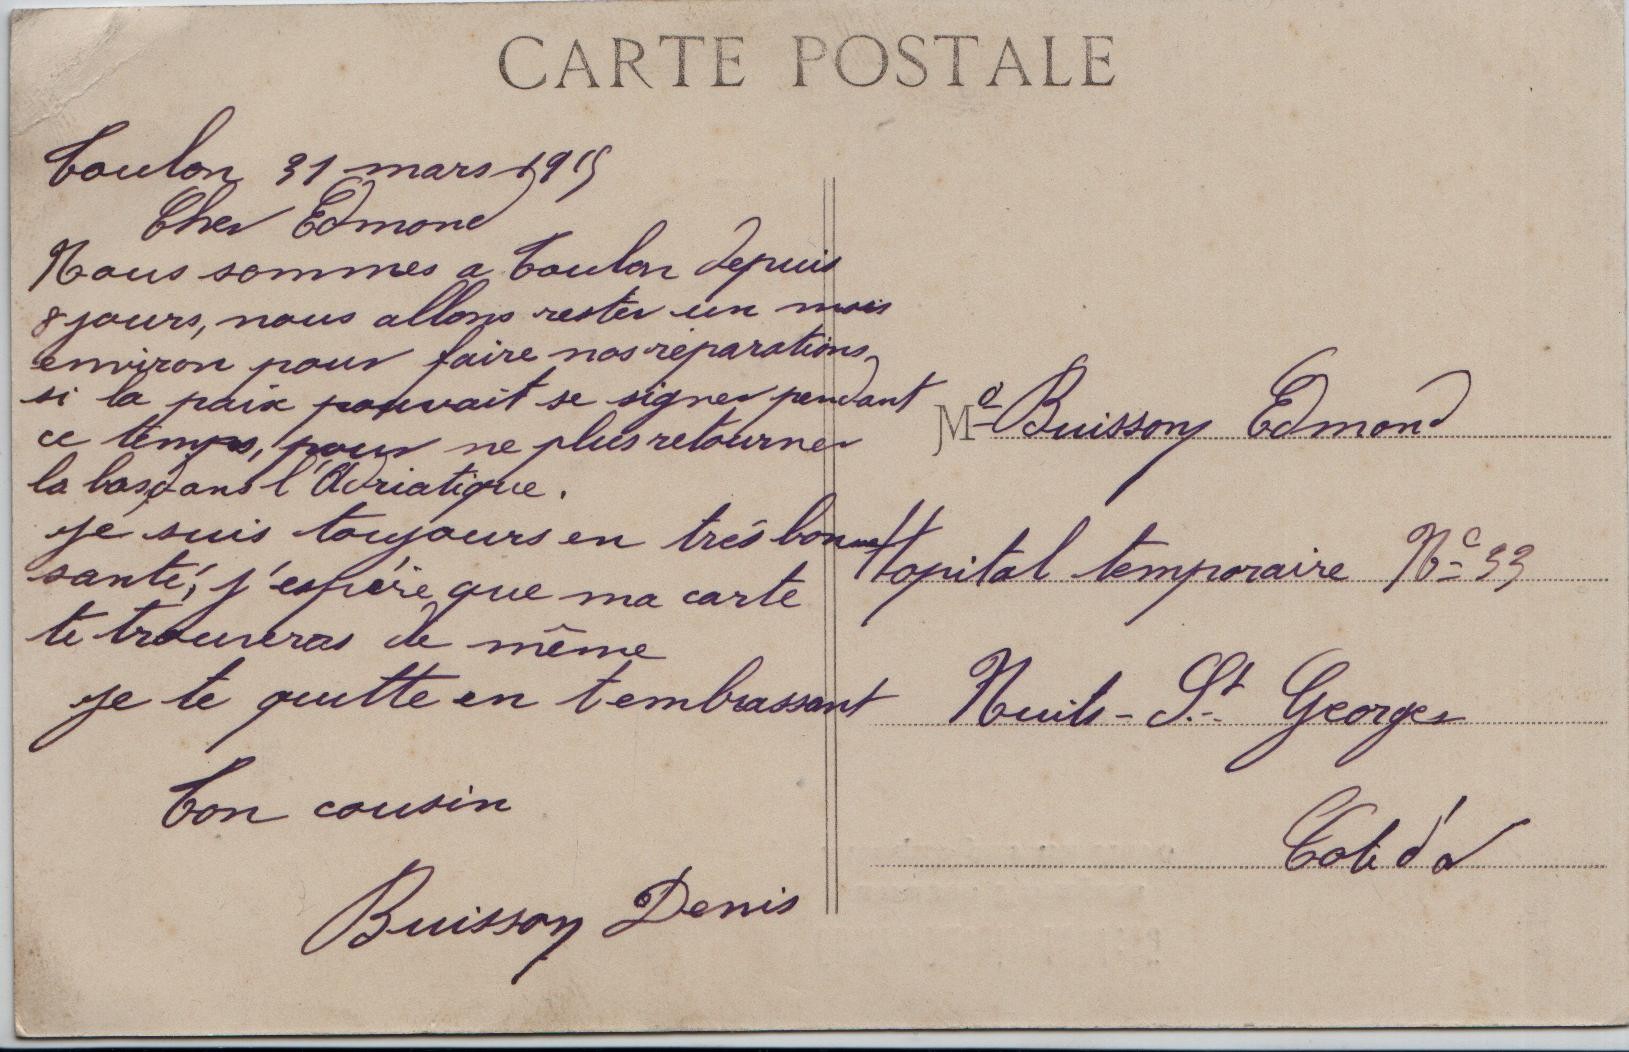 CARTE POSTALE
Toulon 31 mars 1915
Cher Edmond
Nous sommes a Toulon depuis
8 jours, nous allons rester un mois
environ pour faire nos réparations,
si la paix pouvait se signer pendant
ce temps, pour ne plus retourner
la bas dans l'Adriatique.
je suis toujours en trés bonne
santé, j'espére que ma carte
te trouveras de même
je te quitte en t embrassant
Ton cousin
Buisson Denis
Mr Buisson Edmond
Hopital temporaire No 33
Nuits-St Georges
Cote d'or